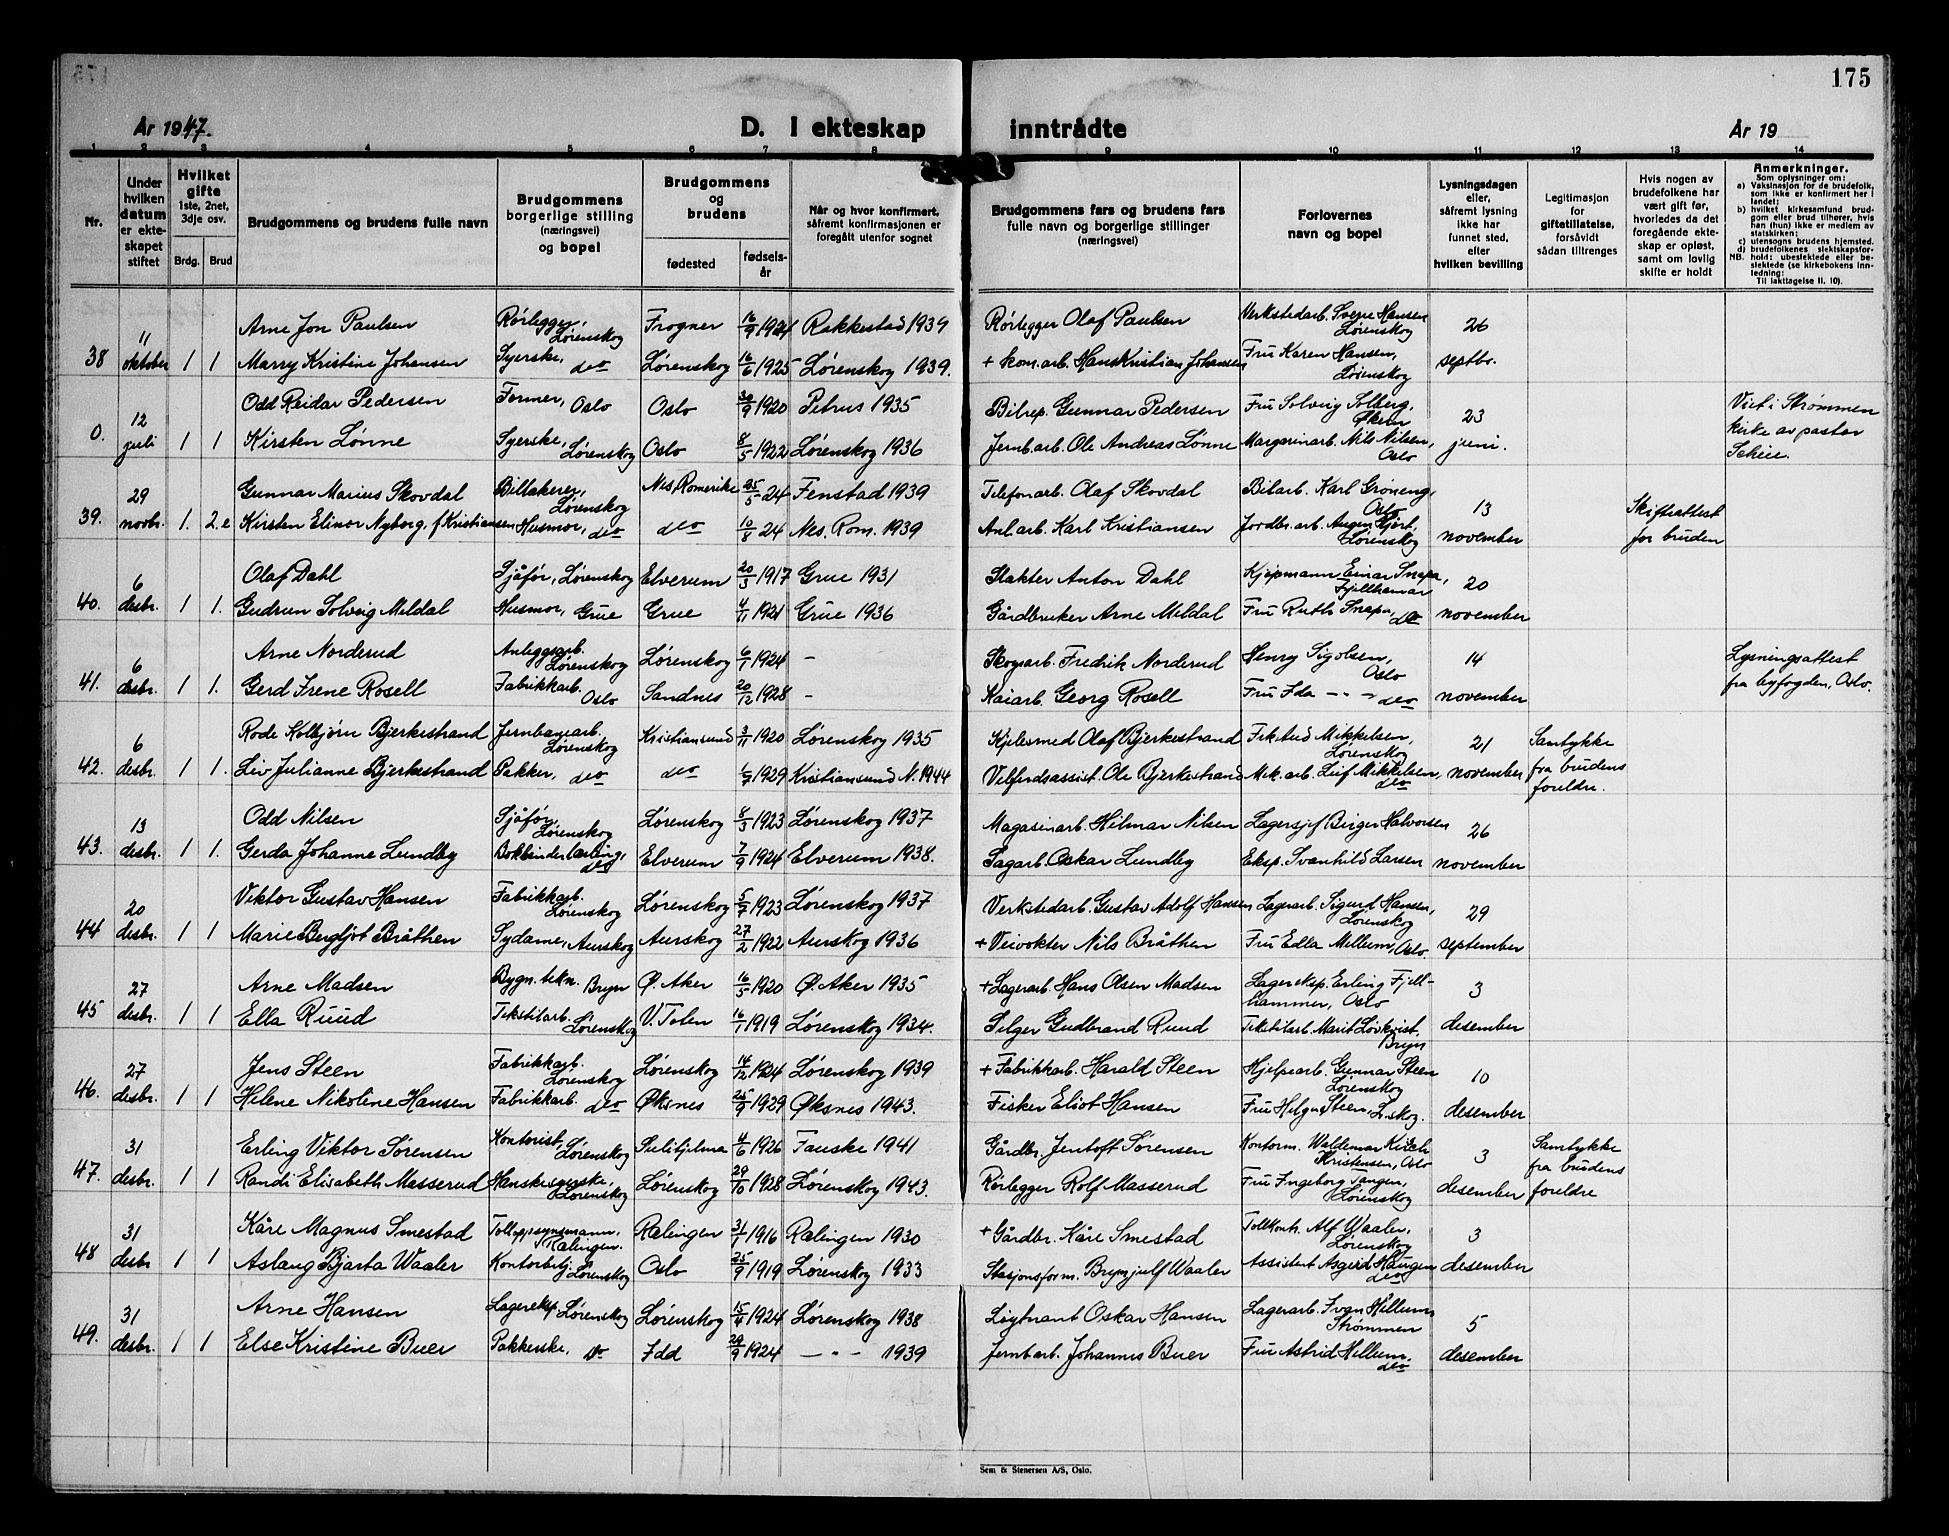 175
År 1947.
D. I ekteskap
inntrådte
År 19
1 2 3 4 5 6 7 8 9 10 11 12 13 14
Nr.
Under hvilken datum er ekteskapet stiftet
Hvilket gifte 1ste, 2net, 3dje osv.
Brdg. Brud
Brudgommens og brudens fulle navn
Brudgommens borgerlige stilling (næringsvei) og bopel
Brudgommens og brudens
fødested
fødselsår
Når og hvor konfirmert, såfremt konfirmasjonen er foregått utenfor sognet
Brudgommens fars og brudens fars fulle navn og borgerlige stillinger (næringsvei)
Forlovernes navn og bopel
Lysningsdagen eller, såfremt lysning ikke har funnet sted, efter hvilken bevilling
Legitimasjon for giftetillatelse, forsåvidt sådan tiltrenges
Hvis nogen av brudefolkene har vært gift før, hvorledes da det foregående ekteskap er opløst, samt om lovlig skifte er holdt
Anmerkninger.
Som oplysninger om:
a) Vaksinasjon for de brudefolk, som ikke er konfirmert her i landet;
b) hvilket kirkesamfund brudgom eller brud tilhører, hvis han (hun) ikke er medlem av statskirken;
c) utensogns brudens hjemsted.
d) brudefolkenes slektskapsforhold: ubeslektede eller beslektede (se kirkebokens innledning:
NB.
Til iakttagelse II. 10).
11 Arne Jon Paulsen Rørlegger, Lørenskog Frogner 16/9 1924 Rakkestad 1939 Rørlegger Olaf Paulsen Verkstedarb. Sverre Hansen Lørenskog 26
38 oktober 1 1 Marry Kristine Johansen Syerske, do Lørenskog 16/6 1925 Lørenskog 1939. + kom.arb. Hans Kristian Johansen Fru Karen Hansen, Lørenskog septbr.
12 Odd Reidar Pedersen Former, Oslo Oslo 30/9 1920 Petrus 1935 Bilrep. Gunnar Pedersen Fru Solveig Solberg, 23 Viet i Strømmen
0. juli 1 1 Kirsten Lønne Syerske, Lørenskog Oslo 8/5 1922 Lørenskog 1936 Jernb.arb. Ole Andreas Lønne Margarinarb. Nils Nilsen, Oslo juni. kirke av pastor Scheie.
29 Gunnar Marius Skovdal Billakerer, Lørenskog Nes Romerike 25/5 24 Fenstad 1939 Telefonarb. Olaf Skovdal Bilarb. Karl Grøneng, Oslo 13 Skifteattest
39. novbr. 1. 2.e Kirsten Elinor Nyborg, f. Kristiansen Husmor, do do 10/8 24 Nes. Rom. 1939 Anl.arb. Karl Kristiansen Jordbr.arb. Lørenskog november for bruden
6 Olaf Dahl Sjåfør, Lørenskog Elverum 1917 Grue 1931 Slakter Anton Dahl Kjøpmann Einar Snapa, Fjellhamar 20
40. desbr. 1 1. Gudrun Solveig Meldal Husmor, Grue Grue 4/11 1921 Grue 1936 Gårdbruker Arne Meldal Fru Ruth Snapa, do november
6 Arne Norderud Anleggsarb. Lørenskog Lørenskog 6/1 1924 - Skogsarb. Fredrik Norderud Henry Sigolsen, Oslo 14 Lysningsattest
41. desbr. 1 1. Gerd Irene Rosell Fabrikkarb. Oslo Sandnes 20/12 1928 - Kaiarb. Georg Rosell Fru Ida - " - do november fra byfogden, Oslo.
6 Rode Kolbjørn Bjerkestrand Jernbanearb. Lørenskog Kristiansund 3/11 1920 Lørenskog 1935 Kjelesmed Olaf Bjerkestrand Mikkelsen, Lørenskog 21 Samtykke
42. desbr. 1 1. Liv Julianne Bjerkestrand Pakker, do do 1929 Kristiansund N. 1944 Velferdsassist. Ole Bjerkestrand Mek.arb. Leif Mikkelsen, do november fra brudens foreldre.
13 Odd Nilsen Sjåfør, Lørenskog Lørenskog 8/3 1923 Lørenskog 1937 Magasinarb. Hilmar Nilsen Lagersjef Birger Halvorsen 26
43. desbr. 1 1. Gerda Johanne Lundby Bokbinderlærling, do Elverum 7/9 1924 Elverum 1938. Sagarb. Oskar Lundby Eksp. Svanhild Larsen november
20 Viktor Gustav Hansen Fabrikkarb. Lørenskog Lørenskog 5/7 1923 Lørenskog 1937 Verkstedarb. Gustav Adolf Hansen Lagerarb. Sigurd Hansen, Lørenskog 29
44 desbr. 1 1 Marie Bergljot Bråthen Sydame, Aurskog Aurskog 27/2 1922 Aurskog 1936 + Veivokter Nils Bråthen Fru Edla Mellum, Oslo september
27 Arne Madsen Bygn. tekn. Bryn Ø. Aker 16/5 1920 Ø. Aker 1935 + Lagerarb. Hans Olsen Madsen Lagereksp. Erling Fjellhammer, Oslo 3
45 desbr. 1 1 Ella Ruud Tekstilarb. Lørenskog V. Toten 16/1 1919 Lørenskog 1934. Selger Gudbrand Ruud Tekstilarb. Marit Løvkvist, Bryn desember
27 Jens Steen Fabrikkarb. Lørenskog Lørenskog 14/12 1924 Lørenskog 1939 + Fabrikkarb. Harald Steen Hjelpearb. Gunnar Steen Lørenskog 10
46. desbr. 1 1 Helene Nikoline Hansen Fabrikkarb. do Øksnes 25/9 1929 Øksnes 1943. Fisker Eliot Hansen Fru Helga Steen, L.skog. desember
31 Erling Viktor Sørensen Kontorist, Lørenskog Sulitjelma 4/6 1926 Fauske 1941 Gårdbr. Jentoft Sørensen Kontorm. Waldemar Kirch Kristensen, Oslo 3 Samtykke
47. desbr. 1 1 Randi Elisabeth Masserud Hanskesyerske, Lørenskog Lørenskog 29/10 1928 Lørenskog 1943. Rørlegger Rolf Masserud Fru Ingeborg Tangen, Lørenskog desember fra brudens foreldre
31 Kåre Magnus Smestad Tolloppsynsmann, Rælingen. Rælingen 31/1 1916 Rælingen 1930 + Gårdbr. Kåre Smestad Tollkontr. Alf Waaler, Lørenskog 3
48 desbr 1 1 Aslaug Bjarta Waaler Kontorbetj. Lørenskog Oslo 25/9 1919 Lørenskog 1933 Stasjonsform. Brynjulf Waaler Assistent Asgerd Haugen do desember
31 Arne Hansen Lagereksp. Lørenskog Lørenskog 15/4 1924 Lørenskog 1938 Løytnant Oskar Hansen Lagerarb. Ivan Hellum Strømmen 5
49. desbr. 1 1 Else Kristine Buer Pakkerske, do Idd 29/9 1924 - " - 1939 Jernb.arb. Johannes Buer Fru Astrid Hellum, do desember
Sem & Stenersen A/S, Oslo.